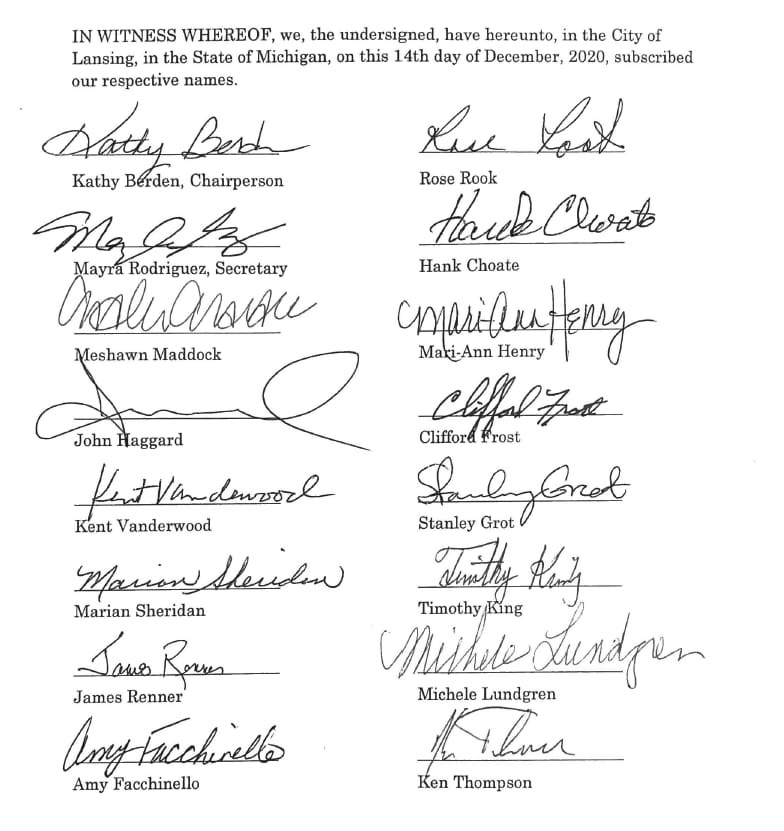 IN WITNESS WHEREOF, we, the undersigned, have hereunto, in the City of
Lansing, in the State of Michigan, on this 14th day of December, 2020, subscribed
our respective names.
Kathy Berden
Kathy Berden, Chairperson
Rose Rook
Rose Rook
Mayra Rodriguez, Secretary
Hank Choate
Hank Choate
Meshawn Maddock
Mari-Ann Henry
Mari-Ann Henry
John Haggard
Clifford Frost
Clifford Frost
Kent Vanderwood
Kent Vanderwood
Stanley Grot
Stanley Grot
Marian Sheridan
Marian Sheridan
Timothy King
Timothy King
James Renner
James Renner
Michele Lundgren
Michele Lundgren
Amy Facchinello
Amy Facchinello
Ken Thompson